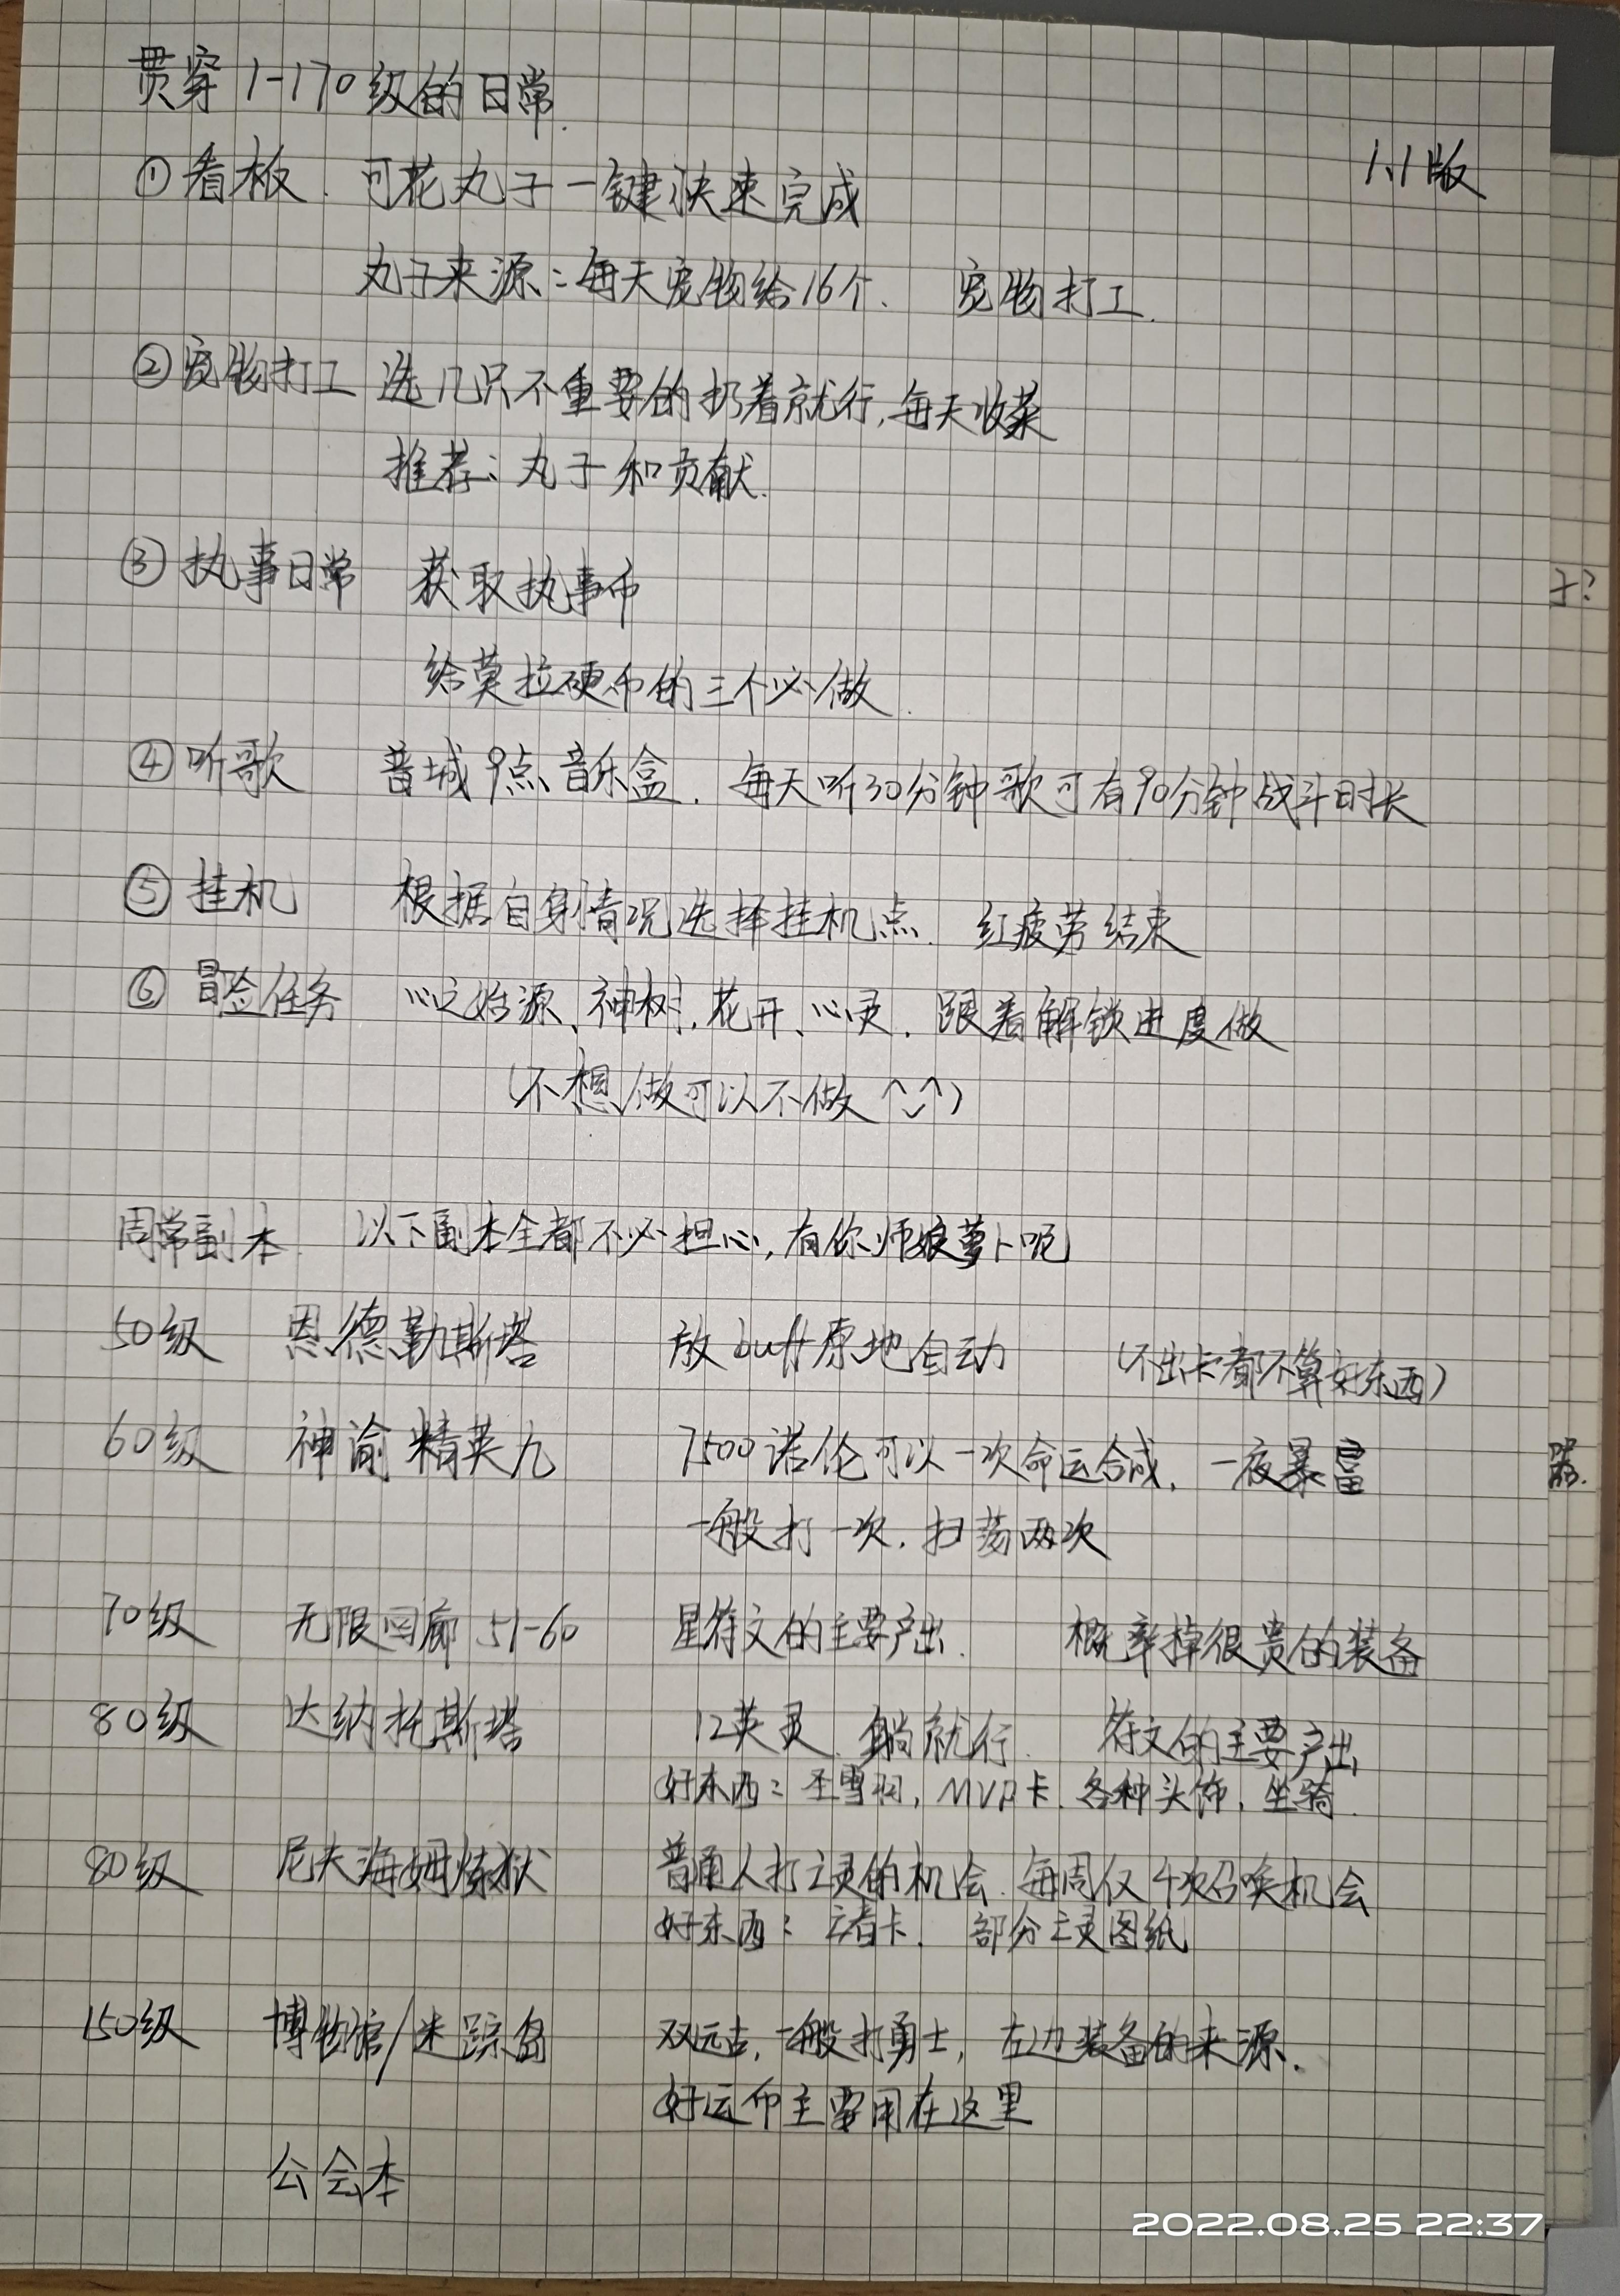 贯穿1-170级的日常
1.1版
①看板. 可花丸子一键快速完成
丸子来源:每天宠物给16个. 宠物打工.
②宠物打工 选几只不重要的扔着就行,每天收菜
推荐:丸子和贡献.
③执事日常 获取执事币
给莫拉硬币的三个必做.
④听歌 普城9点音乐盒. 每天听30分钟歌可有90分钟战斗时长
⑤挂机 根据自身情况选择挂机点. 红疲劳结束
⑥冒险任务 心之始源、神树,花开、心灵. 跟着解锁进度做
(不想做可以不做^_^)
周常副本. 以下副本全都不必担心,有你师娘萝卜呢
50级 恩德勒斯塔 放buff原地自动 (不出卡都不算好东西)
60级 神谕精英九 7500诺伦可以一次命运合成,一夜暴富
一般打一次,扫荡两次
70级 无限回廊51-60 星符文的主要产出. 概率掉很贵的装备
80级 达纳托斯塔 12英灵.躺就行. 符文的主要产出
好东西:圣雪羽,MVP卡.各种头饰,坐骑.
80级 尼夫海姆炼狱 普通人打亡灵的机会.每周仅4次召唤机会
好东西:亡者卡. 部分亡灵图纸
150级 博物馆/迷踪岛 双远古,一般打勇士,左边装备的来源.
好运币主要用在这里
公会本
于?
器.
2022.08.25 22:37